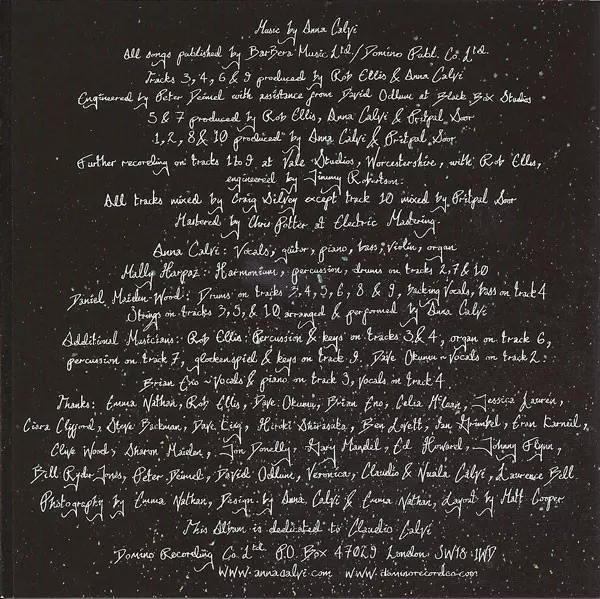 Music by Anna Calvi
All songs published by BarBera Music Ltd/Domino Publ. Co. Ltd.
Tracks 3, 4, 6 & 9 produced by Rob Ellis & Anna Calvi
Engineered by Peter Deimel with assistance from David Odlum at Black Box Studios
5 & 7 produced by Rob Ellis, Anna Calvi & Pritpal Soor
1, 2, 8 & 10 produced by Anna Calvi & Pritpal Soor
Further recording on tracks 1 to 9 at Vale Studios, Worcestershire, with Rob Ellis,
engineered by Jimmy Robertson.
All tracks mixed by Craig Silvey except track 10 mixed by Pritpal Soor
Mastered by Chris Potter at Electric Mastering
Anna Calvi: Vocals, guitar, piano, bass, violin, organ
Mally Harpaz: Harmonium, percussion, drums on tracks 2, 7 & 10
Daniel Maiden-Wood: Drums on tracks 3, 4, 5, 6, 8 & 9, Backing Vocals, bass on track 4
Strings on tracks 3, 5, & 10 arranged & performed by Anna Calvi
Additional Musicians: Rob Ellis: Percussion & keys on tracks 3 & 4, organ on track 6,
percussion on track 7, glockenspiel & keys on track 9. Dave Okumu ~ Vocals on track 2.
Brian Eno ~ Vocals & piano on track 3, Vocals on track 4
Thanks: Emma Nathan, Rob Ellis, Dave Okumu, Brian Eno, Celia McLean, Jessica Lauren,
Ciara Clifford, Steve Backman, Dave King, Hiroki Shirasuka, Ben Lovett, Ian Grimble, Eran Karneil,
Clive Wood, Sharon Maiden, Jon Donelly, Gary Mandel, Ed Howard, Johnny Flynn,
Bill Ryder-Jones, Peter Deimel, David Odlum, Veronica, Claudio & Nuala Calvi, Laurence Bell
Photography by Emma Nathan, Design by Anna Calvi & Emma Nathan, Layout by Matt Cooper
This Album is dedicated to Claudio Calvi
Domino Recording Co. Ltd. P.O. Box 47029 London SW18 1WD
www.annacalvi.com www.dominorecordco.com